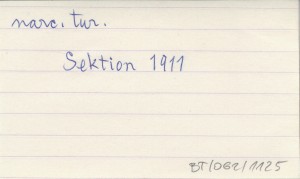 narc. tur.
Sektion 1911
BT/DG2/1125